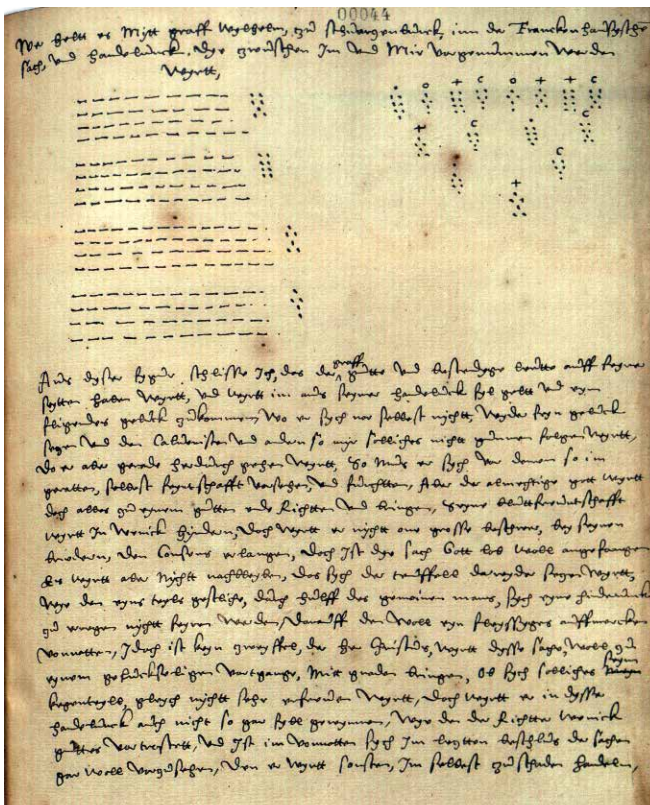 00044
Wie helt es Mytt graff Wylhelm, zu Schwartzenburck, inn der Franckenhaußysche
sach, und handelunck. Dye zwuschen Im und Mir vorgenummen werden
Wyrtt,
Aus dyser fygur schlisse Ich, das der graff gutte und bestendyge leutte auff seyne
seytten haben Wyrtt, und Wyrtt im aus seyner handelunck fyl geltt und eyn
fligendes geluck zukommen, Wo er sych nor selbest nychtt, Wyder seyn geluck
legen und den Calvinisten und andern so mir solliches nichtt gunnen folgen Wyrtt,
Do er aber gerade hindurch gehen Wyrtt, So Mus er sych vor denen so im
geratten, selbest feyntschafft vorsehen, und furchtten, Aber der almechtige gott Wyrtt
doch alles zu eynem gutten ende Richtten und bringen, Seyne bluttfreuntschafft
Wyrtt In Wenick hyndern, Doch Wyrtt er nychtt one grosse beschwer, bey seynen
brudern, den Consens erlangen, Doch Ist dye sach Gott lob Woll angefangen
Es Wyrtt aber Nychtt nachbleyben, das sych der teuffell darwyder legen Wyrtt,
Wye den eyns teyls gestliche, durch hulff des gemeinen mans, sych eyne hindernuck
zu erregen nychtt feyren Werden, Darauff den Woll eyn fleyssyges auffmercken
vonnotten, Idoch ist keyn zweyffel, der her Cristus, Wyrtt dysse sache, Woll, zu
eynem gluckseligen vortgange, Mitt gnaden bringen, Ob sych solliches seyn
kegenteyll, gleych nychtt sehr erfreuen Wyrtt, Doch Wyrtt er in dysse
handelunck auch nicht so gar fyll gewynnen, Wye den der Richtter Wenick
guttes vortrestett, und Ist im vonnotten sych Im letzten beschlus der sachen
gar Woll vorzusehen, Den er Wyrtt sonsten, Im selbest zu schaden handeln,